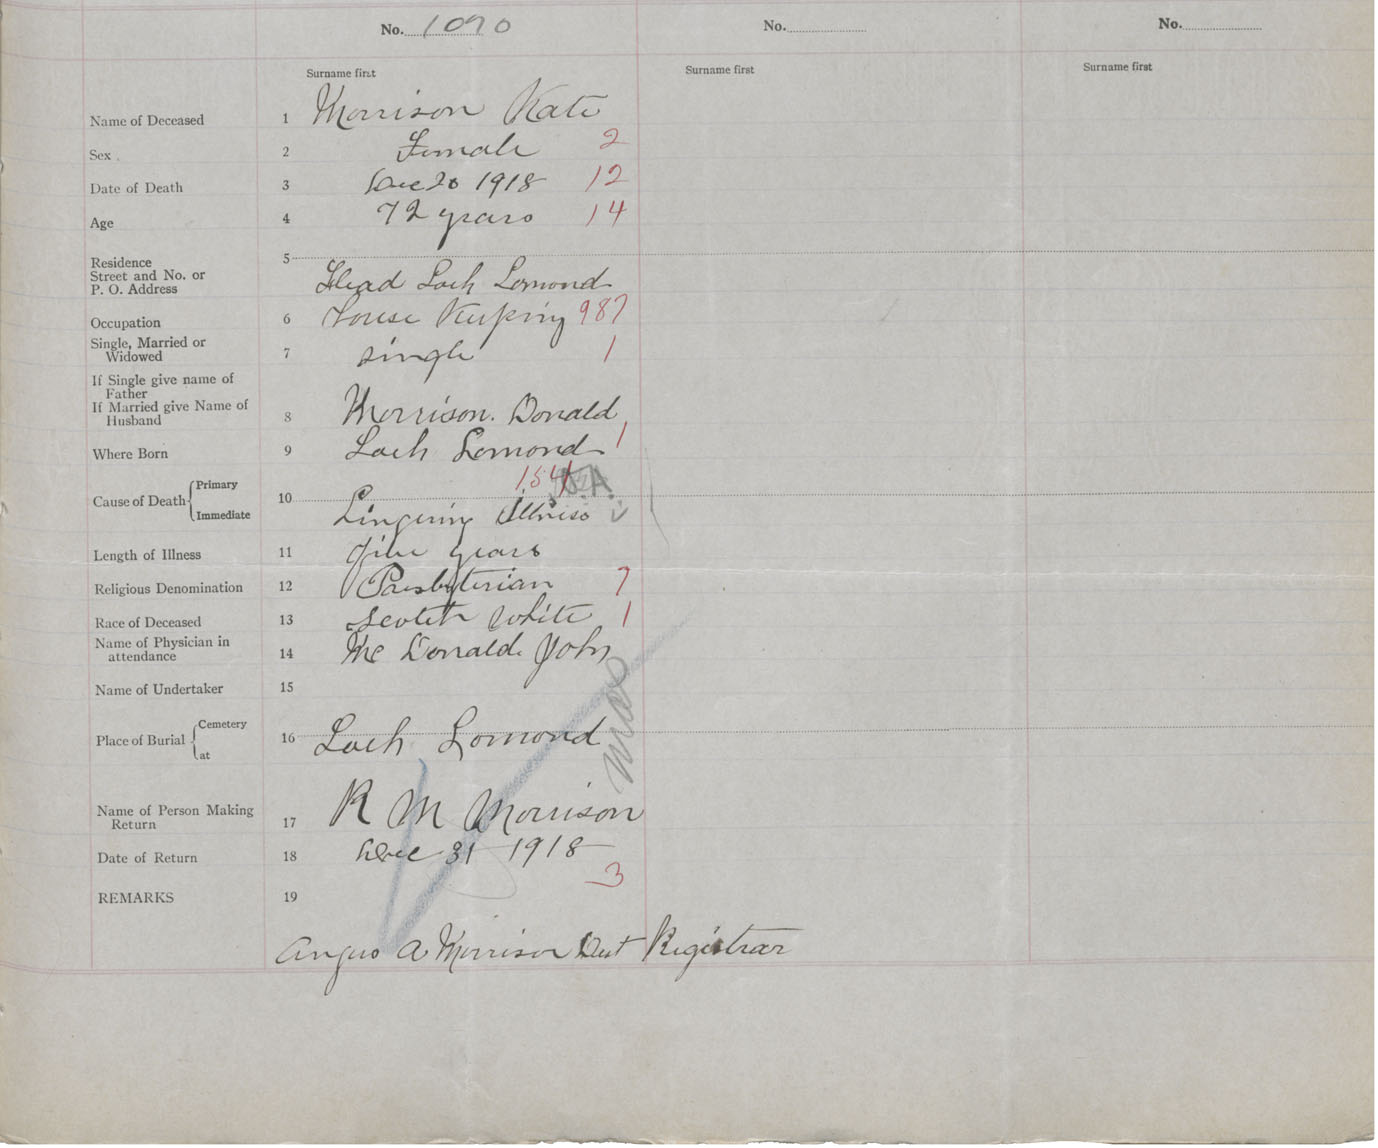 No. 1090 No. No.
Surname first Surname first Surname first
Name of Deceased 1 Morrison Kate
Sex. 2 Female 2
Date of Death 3 Dec 20 1918 12
Age 4 72 years 14
Residence 5
Street and No. or
P. O. Address Head Loch Lomond
Occupation 6 House Keeping 987
Single, Married or
Widowed 7 single 1
If Single give name of
Father
If Married give Name of
Husband 8 Morrison. Donald
Where Born 9 Loch Lomond 1
154
Cause of Death Primary 10
Immediate Lingering Illness
Length of Illness 11 five years
Religious Denomination 12 Presbyterian 7
Race of Deceased 13 Scotch White 1
Name of Physician in
attendance 14 Mc Donald. John
Name of Undertaker 15
Place of Burial Cemetery 16 Loch Lomond
at
Name of Person Making
Return 17 R M Morrison
Date of Return 18 Dec 31 1918
3
REMARKS 19
Angus A Morrison Dist Registrar